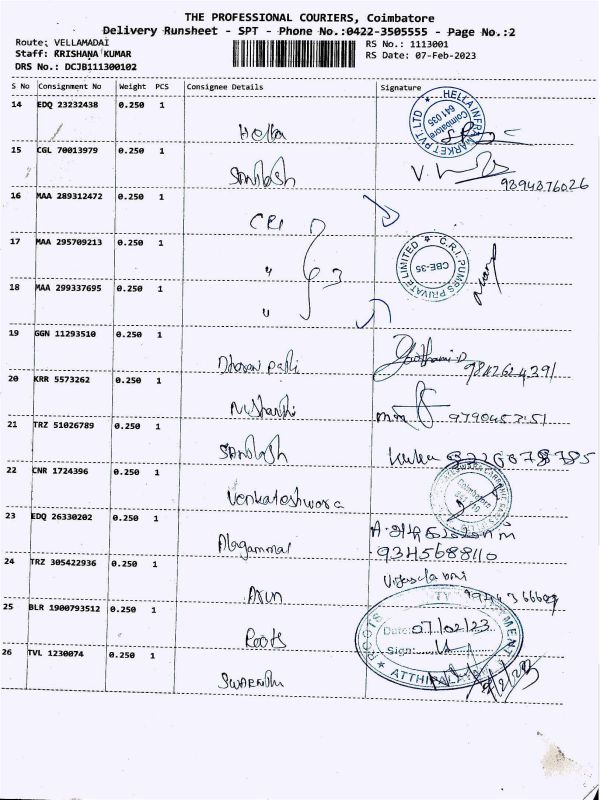 THE PROFESSIONAL COURIERS, Coimbatore
Delivery Runsheet - SPT - Phone No.:0422-3505555 - Page No.:2
Route: VELLAMADAI RS No.: 1113001
Staff: KRISHANA KUMAR RS Date: 07-Feb-2023
DRS No.: DCJB111300102
S No Consignment No Weight PCS Consignee Details Signature
14 EDQ 23232438 0.250 1 Hella
HELLA INFRA MARKET PVT. LTD Coimbatore 641 035
15 CGL 70013979 0.250 1 Santosh
9894876026
16 MAA 289312472 0.250 1 CRI
17 MAA 295709213 0.250 1 " 3
C.R.I. PUMPS PRIVATE LIMITED CBE-35
18 MAA 299337695 0.250 1 "
19 GGN 11293510 0.250 1
20 KRR 5573262 0.250 1
21 TRZ 51026789 0.250 1 Santosh
22 CNR 1724396 0.250 1 Venkateshwara
Coimbatore
23 EDQ 26330202 0.250 1 Alagammal
9345688110
24 TRZ 305422936 0.250 1 Arun
25 BLR 1900793512 0.250 1 Roots
ROOTS
Date: 07/02/23
Sign:
26 TVL 1230074 0.250 1